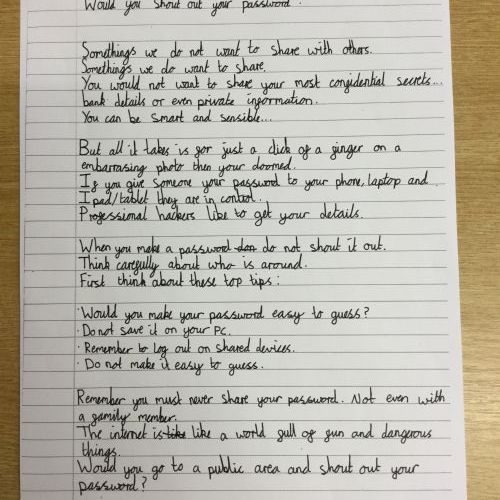 Would you shout out your password?
Somethings we do not want to share with others.
Somethings we do want to share.
You would not want to share your most confidential secrets...
bank details or even private information.
You can be smart and sensible...
But all it takes is for just a click of a finger on a
embarrasing photo then your doomed.
If you give someone your password to your phone, laptop and
Ipad/tablet they are in control.
Professional hackers like to get your details.
When you make a password do not shout it out.
Think carefully about who is around.
First think about these top tips:
· Would you make your password easy to guess?
· Do not save it on your PC.
· Remember to Log out on shared devices.
· Do not make it easy to guess.
Remember you must never share your password. Not even with
a family member.
The internet is like like a world full of fun and dangerous
things.
Would you go to a public area and shout out your
password?